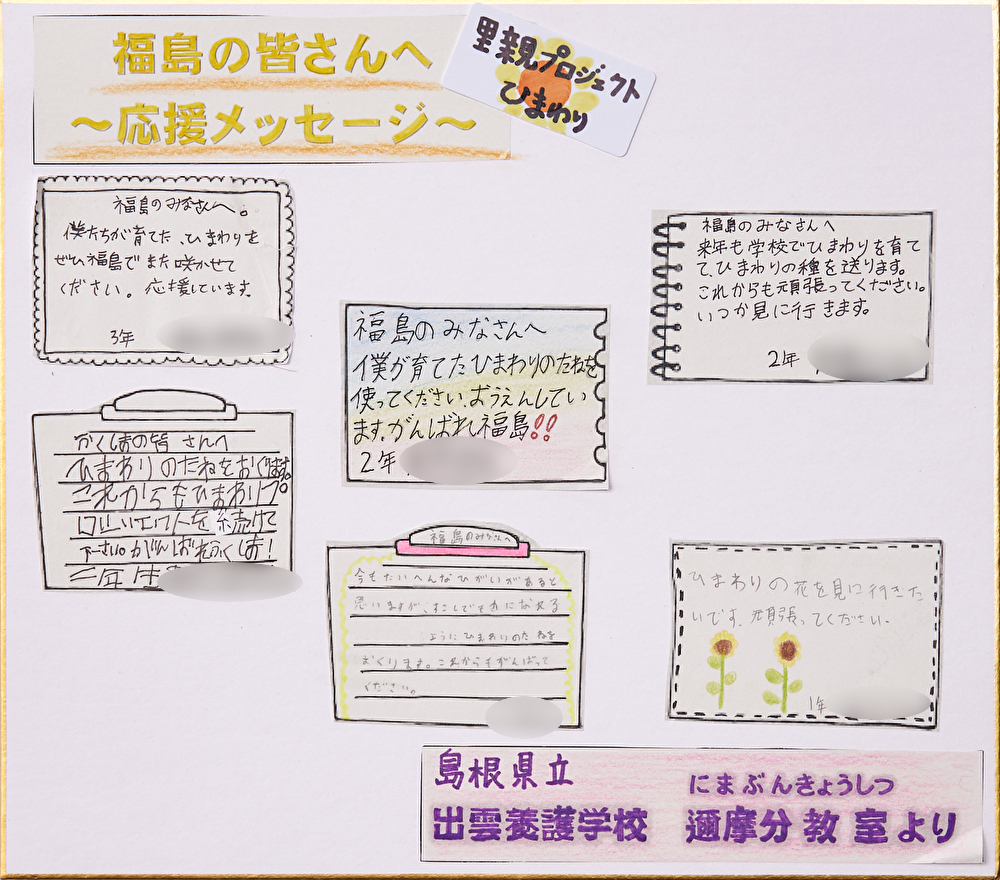 福島の皆さんへ
～応援メッセージ～
里親プロジェクト
ひまわり
福島のみなさんへ。
僕たちが育てた、ひまわりを
ぜひ福島でまた咲かせて
ください。応援しています。
3年
福島のみなさんへ
来年も学校でひまわりを育て
て、ひまわりの種を送ります。
これからも頑張ってください。
いつか見に行きます。
2年
福島のみなさんへ
僕が育てたひまわりのたねを
使ってください。おうえんしてい
ます。がんばれ福島!!
2年
ふくしまの皆さんへ
ひまわりのたねをおくります。
これからもひまわりプ
ロジェクトを続けて
下さい。がんばれふくしま!
三年生
福島のみなさんへ
今もたいへんなひがいがあると
思いますが、すこしでもきになれる
ようにひまわりのたねを
おくります。これからもがんばって
ください。
ひまわりの花を見に行きた
いです。頑張ってください。
1年
島根県立
にまぶんきょうしつ
出雲養護学校 邇摩分教室より